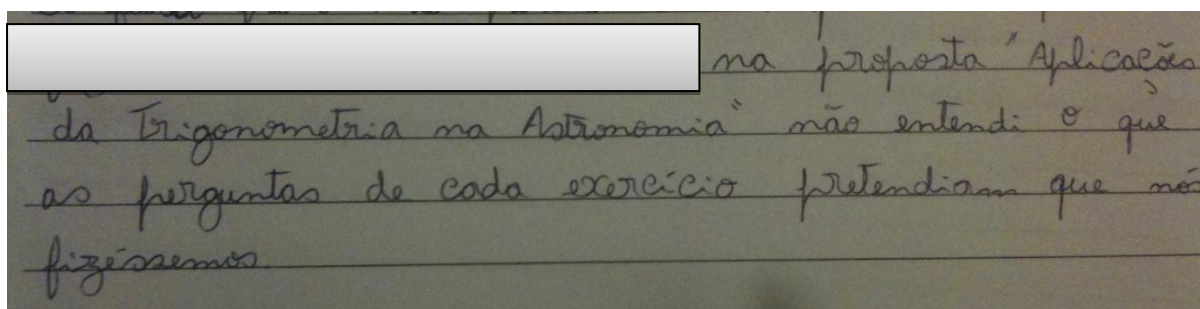 na proposta "Aplicações
da Trigonometria na Astronomia" não entendi o que
as perguntas de cada exercício pretendiam que nós
fizéssemos